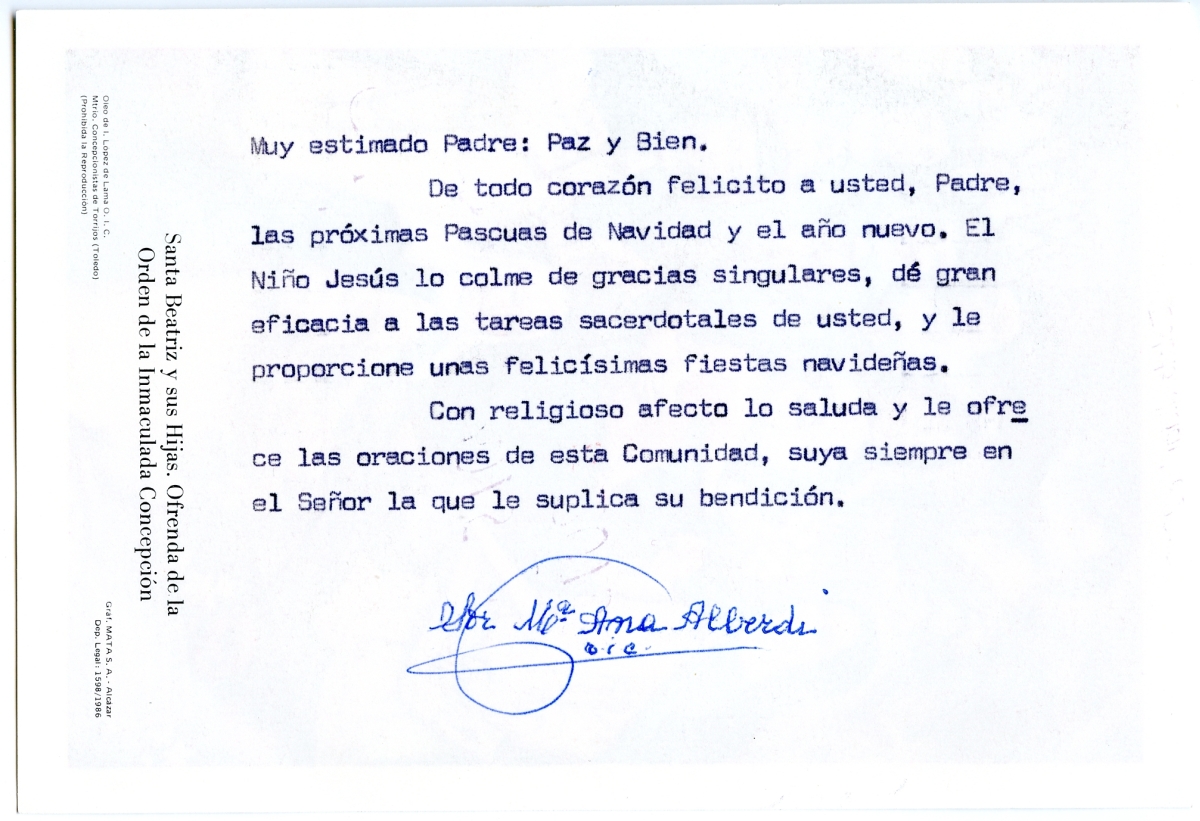 Muy estimado Padre: Paz y Bien.
De todo corazón felicito a usted, Padre,
las próximas Pascuas de Navidad y el año nuevo. El
Niño Jesús lo colme de gracias singulares, dé gran
eficacia a las tareas sacerdotales de usted, y le
proporcione unas felicísimas fiestas navideñas.
Con religioso afecto lo saluda y le ofre
ce las oraciones de esta Comunidad, suya siempre en
el Señor la que le suplica su bendición.
Sor Mª Ana Alberdi
o.i.c.
Santa Beatriz y sus Hijas. Ofrenda de la
Orden de la Inmaculada Concepción
Oleo de I. Lopez de Lama O. I. C.
Mtrio. Concepcionistas de Torrijos (Toledo)
(Prohibida la Reproducción)
Gráf. MATA S. A. - Alcázar
Dep. Legal: 1598/1986